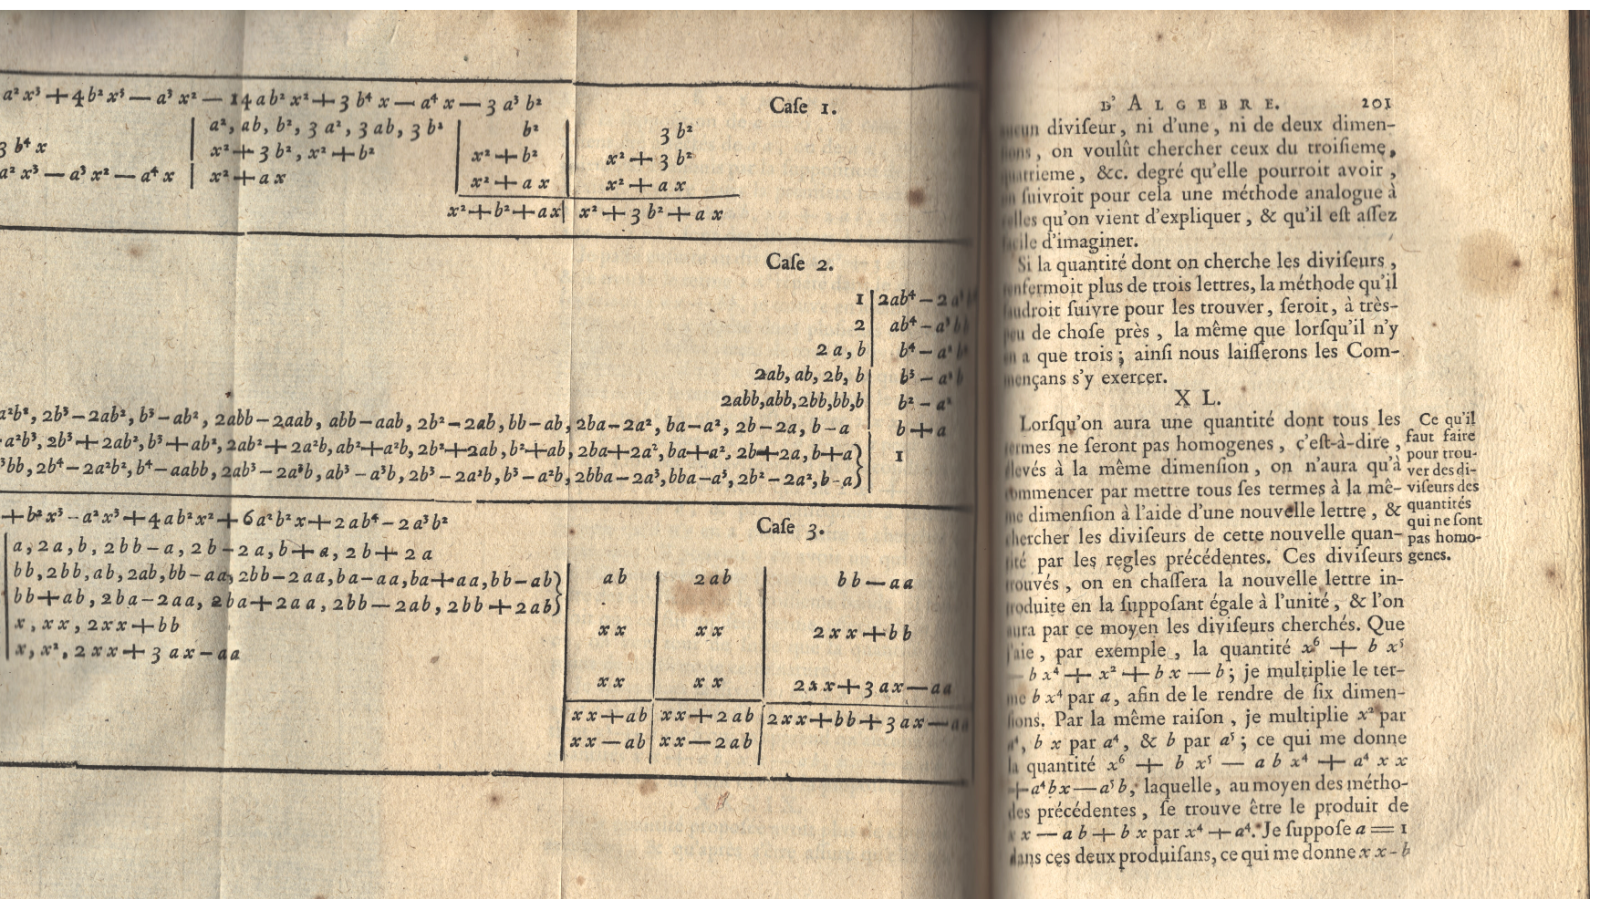 a² x³ + 4 b² x³ — a³ x² — 14 ab² x² + 3 b⁴ x — a⁴ x — 3 a³ b²
Caſe 1.
a², ab, b², 3 a², 3 ab, 3 b² | b² | 3 b²
3 b⁴ x | x² + 3 b², x² + b² | x² + b² | x² + 3 b²
a² x³ — a³ x² — a⁴ x | x² + a x | x² + a x | x² + a x
x² + b² + ax | x² + 3 b² + a x
Caſe 2.
1 | 2ab⁴ — 2
2 | ab⁴ — a³
2 a, b | b⁴ —
2ab, ab, 2b, b | b³ —
2abb, abb, 2bb, bb, b | b² — a²
a²b², 2b³ — 2ab², b³ — ab², 2abb — 2aab, abb — aab, 2b² — 2ab, bb — ab, 2ba — 2a², ba — a², 2b — 2a, b — a | b + a
a²b³, 2b³ + 2ab², b³ + ab², 2ab² + 2a²b, ab² + a²b, 2b² + 2ab, b² + ab, 2ba + 2a², ba + a², 2b + 2a, b + a} | 1
³bb, 2b⁴ — 2a²b², b⁴ — aabb, 2ab³ — 2a³b, ab³ — a³b, 2b³ — 2a²b, b³ — a²b, 2bba — 2a³, bba — a³, 2b² — 2a², b — a}
+ b² x³ — a² x³ + 4 ab² x² + 6 a² b² x + 2 ab⁴ — 2 a³ b²
Caſe 3.
a, 2 a, b, 2 bb — a, 2 b — 2 a, b + a, 2 b + 2 a
bb, 2bb, ab, 2ab, bb — aa, 2bb — 2aa, ba — aa, ba + aa, bb — ab} | ab | 2 ab | bb — aa
bb + ab, 2ba — 2aa, 2ba + 2aa, 2bb — 2ab, 2bb + 2ab}
x, xx, 2xx + bb | xx | xx | 2 xx + bb
x, x², 2 xx + 3 ax — aa | xx | xx | 2xx + 3 ax — aa
xx + ab | xx + 2 ab | 2xx + bb + 3 ax —
xx — ab | xx — 2 ab
D' ALGEBRE. 201
diviſeur, ni d'une, ni de deux dimen-
, on voulût chercher ceux du troiſieme,
, &c. degré qu'elle pourroit avoir,
ſuivroit pour cela une méthode analogue à
qu'on vient d'expliquer, & qu'il eſt aſſez
d'imaginer.
Si la quantité dont on cherche les diviſeurs,
plus de trois lettres, la méthode qu'il
ſuivre pour les trouver, ſeroit, à très-
de choſe près, la même que lorſqu'il n'y
a que trois; ainſi nous laiſſerons les Com-
mençans s'y exercer.
XL.
Lorſqu'on aura une quantité dont tous les
termes ne ſeront pas homogenes, c'eſt-à-dire,
élevés à la même dimenſion, on n'aura qu'à
commencer par mettre tous ſes termes à la mê-
me dimenſion à l'aide d'une nouvelle lettre, &
chercher les diviſeurs de cette nouvelle quan-
tité par les regles précédentes. Ces diviſeurs
trouvés, on en chaſſera la nouvelle lettre in-
troduite en la ſuppoſant égale à l'unité, & l'on
aura par ce moyen les diviſeurs cherchés. Que
j'aie, par exemple, la quantité x⁶ + b x⁵
— b x⁴ + x² + b x — b; je multiplie le ter-
me b x⁴ par a, afin de le rendre de ſix dimen-
ſions. Par la même raiſon, je multiplie x² par
a⁴, b x par a⁴, & b par a⁵; ce qui me donne
la quantité x⁶ + b x⁵ — a b x⁴ + a⁴ x x
+ a⁴ b x — a⁵ b, laquelle, au moyen des métho-
des précédentes, ſe trouve être le produit de
x x — a b + b x par x⁴ + a⁴. Je ſuppoſe a = 1
dans ces deux produiſans, ce qui me donne x x - b
Ce qu'il
faut faire
pour trou-
ver des di-
viſeurs des
quantités
qui ne ſont
pas homo-
genes.